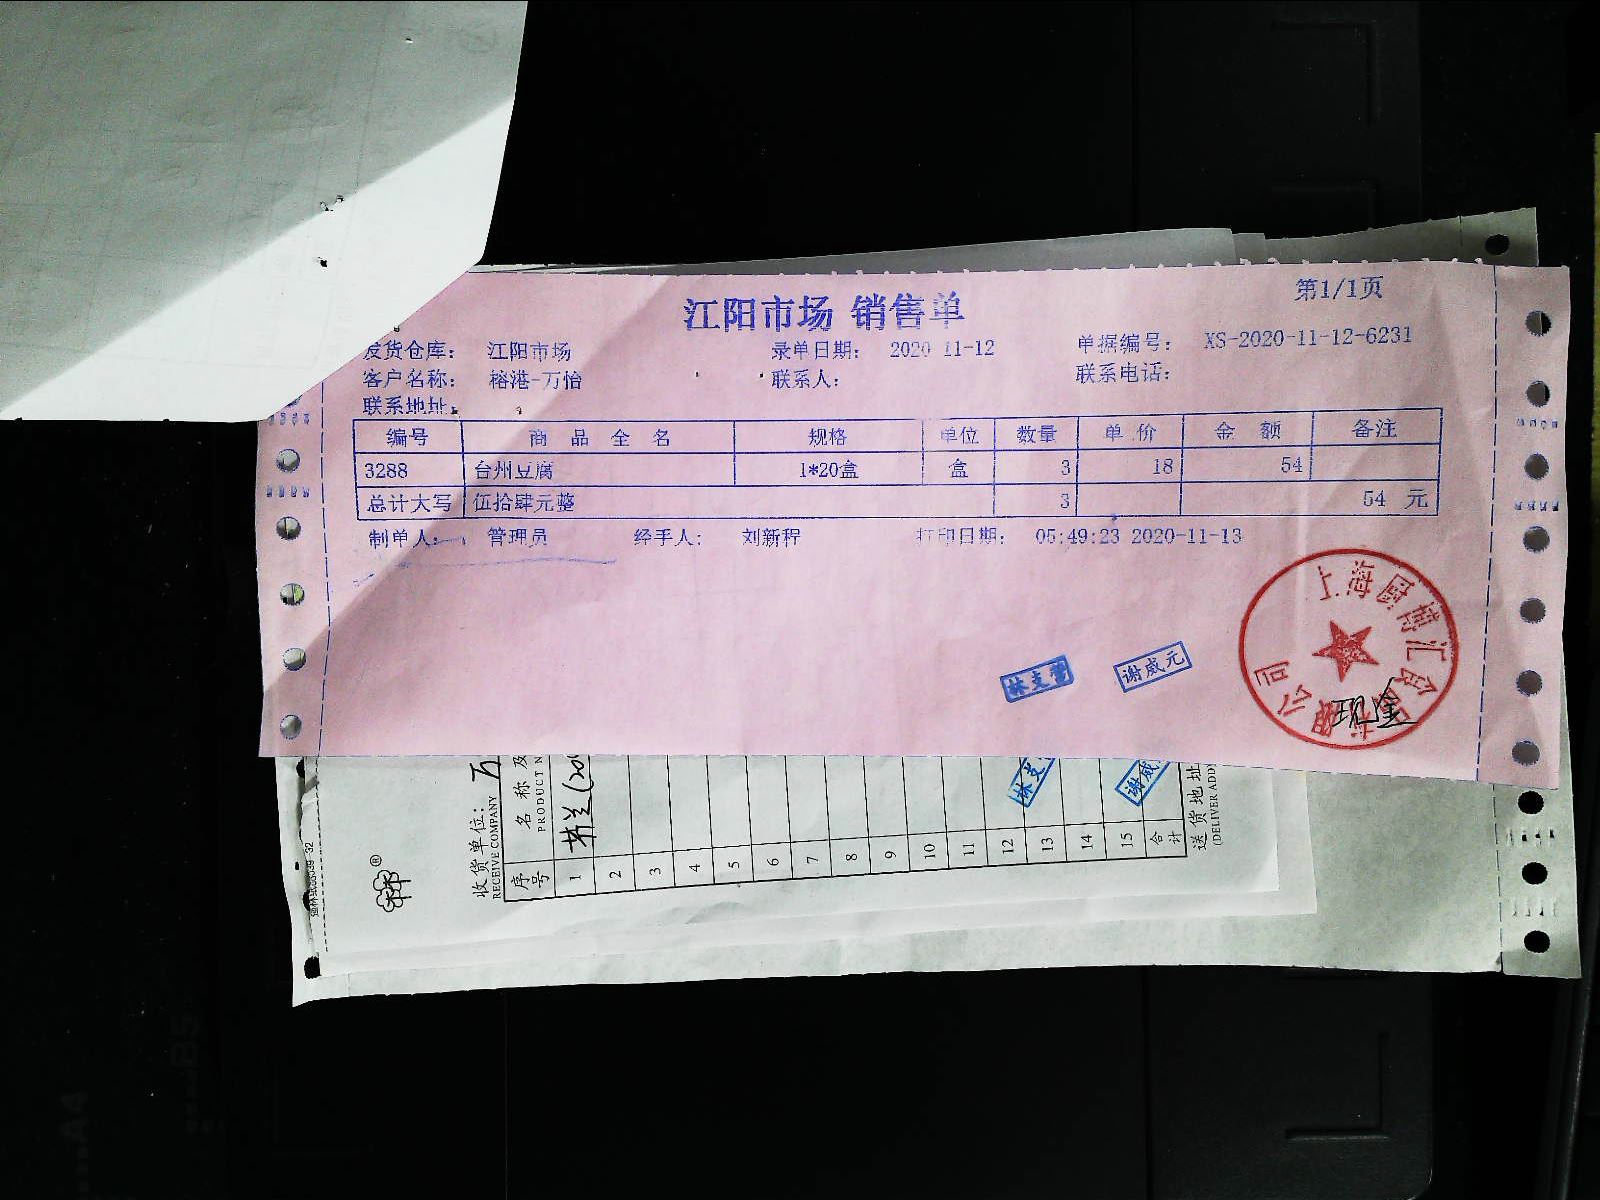 江阳市场 销售单
第1/1页
发货仓库： 江阳市场 录单日期： 2020-11-12 单据编号： XS-2020-11-12-6231
客户名称： 榕港-万怡 联系人： 联系电话：
联系地址：
编号 商 品 全 名 规格 单位 数量 单 价 金 额 备注
3288 台州豆腐 1*20盒 盒 3 18 54
总计大写 伍拾肆元整 3 54 元
制单人： 管理员 经手人： 刘新程 打印日期： 05:49:23 2020-11-13
谢威元
现金
收货单位： 万
RECEIVE COMPANY
序号 名 称 及
PRODUCT N
1
2
3
4
5
6
7
8
9
10
11
12
13
14
15
合计
送货地址
(DELIVER ADD
A4
B5